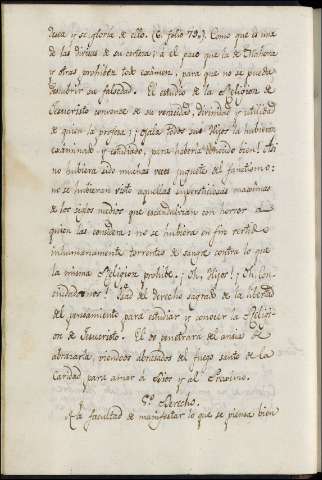 desea y se gloria de ello. (C. folio 79.). Como que es una
de las divisas de su certeza; á el paso que la de Mahoma
y otras prohiben todo exámen, para que no se pueda
descubrir su falsedad. El estudio de la Religion de
Jesucristo convence de su veracidad, divinidad y utilidad
de quien la profesa; ¡ojala todos sus Hijos la hubieran
examinado y estudiado, para haberla conocido bien! Asi
no hubiera sido muchas veces juguete del fanatismo:
no se hubieran visto aquellas supersticiosas maximas
de los siglos medios que escandalizan con horror á
quien las considera; no se hubiera en fin vertido
inhumanamente torrentes de sangre contra lo que
la misma Religion prohibe. ¡Oh, Hijos! ¡Oh, Con-
ciudadanos! Usad del derecho sagrado de la libertad
del pensamiento para estudiar y conocer la Religi-
on de Jesucristo. El os penetrará del ansia de
abrazarla, viendoos abrasados del fuego santo de la
Caridad para amar á Dios y al Proximo.
Derecho.
La facultad de manifestar lo que se piensa bien